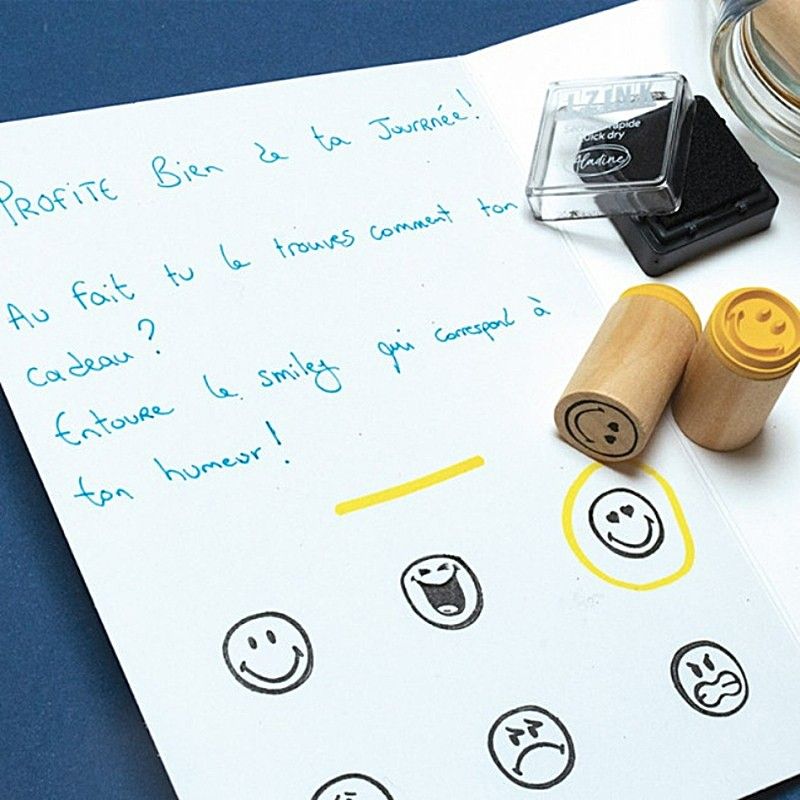 PROFITE Bien de ta Journée!
Au fait tu le trouves comment ton
cadeau?
Entoure le smiley qui correspond à
ton humeur!
IZINK
Séchage rapide
Quick dry
Aladine